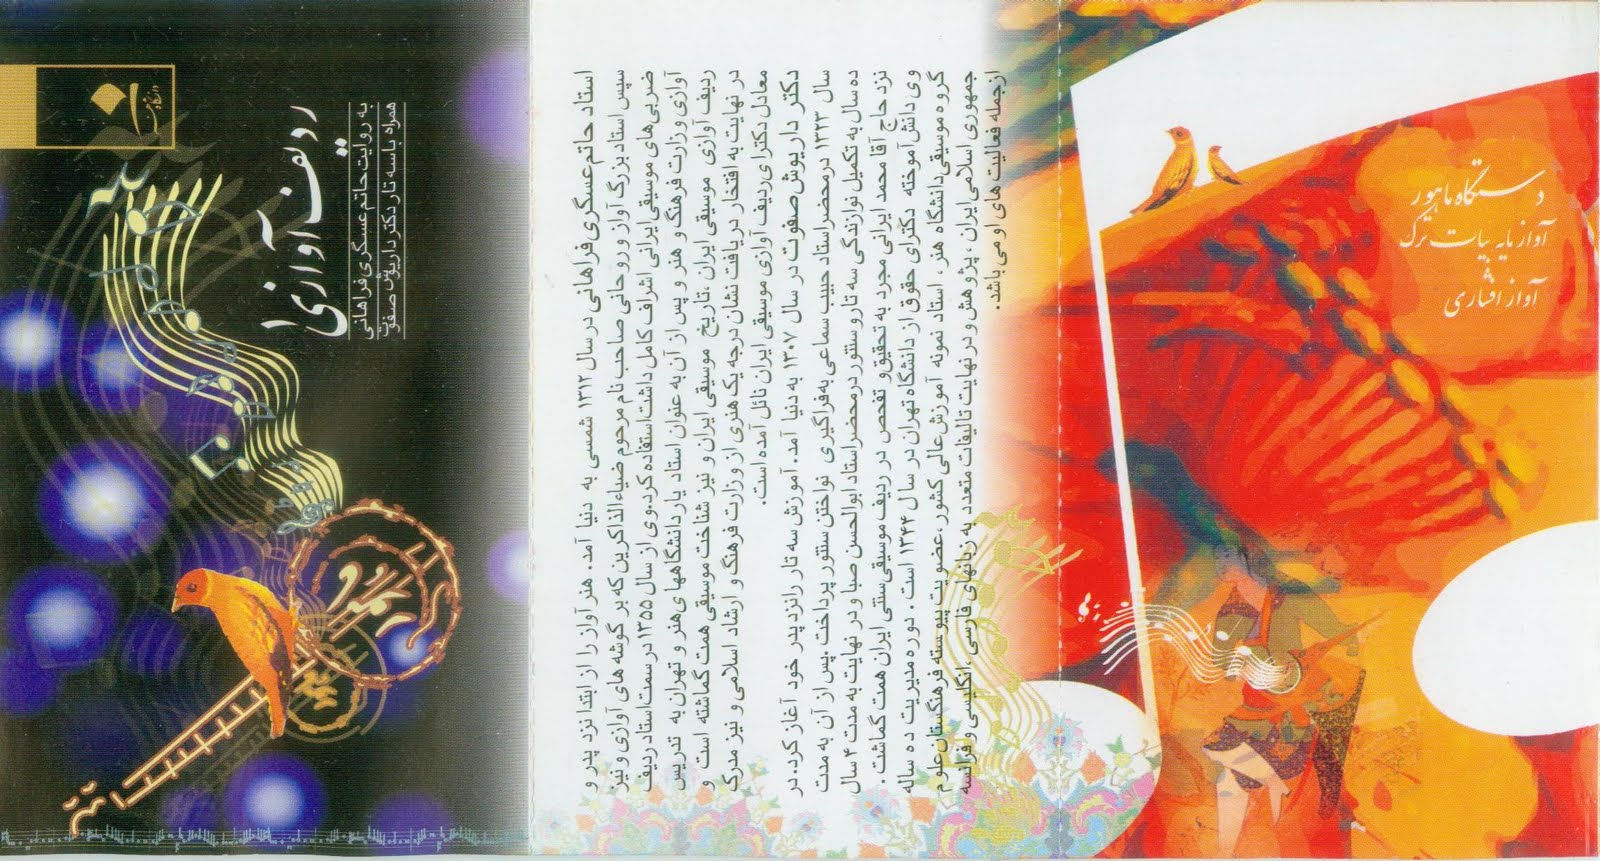 ردیف آوازی ۱
به روایت حاتم عسگری فراهانی
همراه با سه تار دکتر داریوش صفوت
استاد حاتم عسگری فراهانی در سال ۱۳۱۲ شمسی به دنیا آمد. هنر آواز را از ابتدا نزد پدر و
سپس استاد بزرگ آواز و روحانی صاحب نام مرحوم ضیاءالذاکرین که بر گوشه های آوازی و نیز
ضربی های موسیقی ایرانی اشراف کامل داشت استفاده کرد. وی از سال ۱۳۵۵ در سمت استاد ردیف
آوازی وزارت فرهنگ و هنر و پس از آن به عنوان استاد یار دانشگاههای هنر و تهران به تدریس
ردیف آوازی موسیقی ایران ،تاریخ موسیقی ایران و نیز شناخت موسیقی همت گماشته است و
در نهایت به افتخار دریافت نشان درجه یک هنری از وزارت فرهنگ و ارشاد اسلامی و نیز مدرک
معادل دکترای ردیف آوازی موسیقی ایران نائل آمده است.
دکتر داریوش صفوت در سال ۱۳۰۷ به دنیا آمد. آموزش سه تار رانزد پدر خود آغاز کرد. در
سال ۱۳۲۳ درمحضر استاد حبیب سماعی به فراگیری نواختن سنتور پرداخت. پس از آن به مدت
ده سال به تکمیل نوازندگی سه تار و سنتور در محضر استاد ابوالحسن صبا و در نهایت به مدت ۴ سال
نزد حاج آقا محمد ایرانی مجرد به تحقیق و تفحص در ردیف موسیقی سنتی ایران همت گماشت.
وی دانش آموخته دکترای حقوق از دانشگاه تهران در سال ۱۳۴۴ است . دوره مدیریت ده ساله
گروه موسیقی دانشگاه هنر ، استاد نمونه آموزش عالی کشور، عضویت پیوسته فرهنگستان علوم
جمهوری اسلامی ایران ، پژوهش و در نهایت تالیفات متعدد به زبانهای فارسی ،انگلیسی و فرانسه
از جمله فعالیت های او می باشد.
دستگاه ماهور
آواز مایه بیات ترک
آواز افشاری